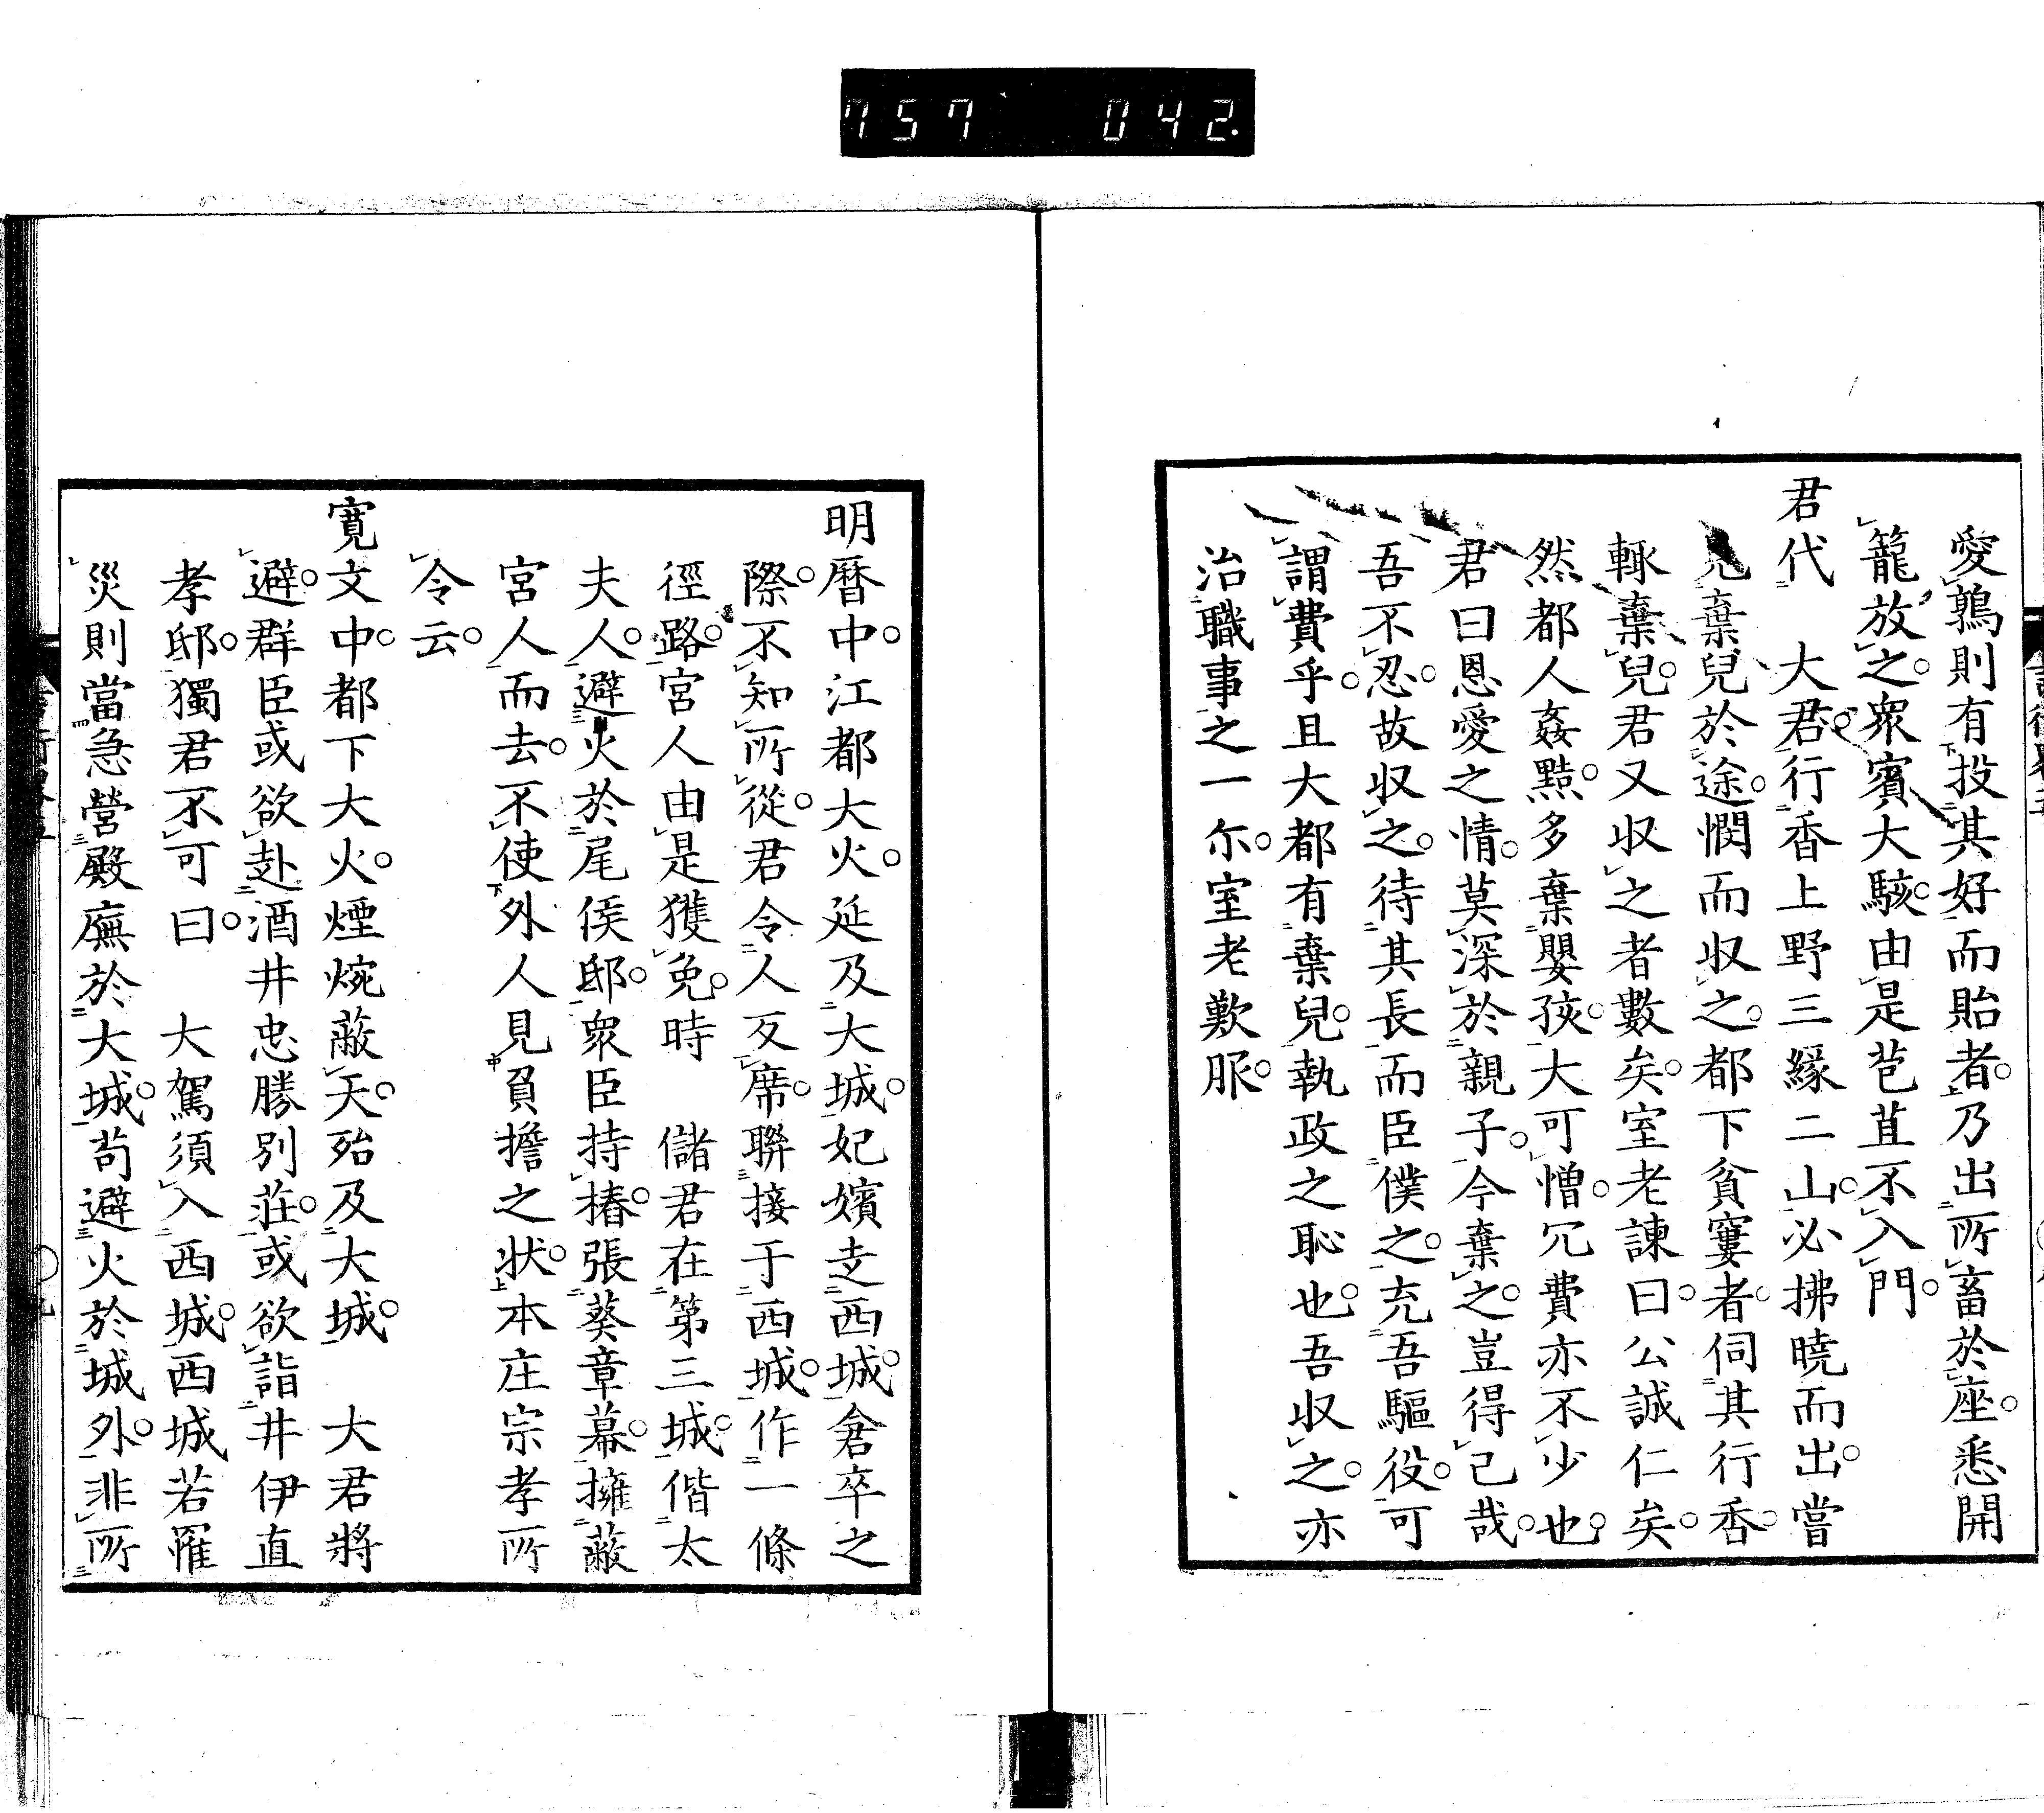 757 042.
愛鶉則有投其好而貽者乃出所畜於座悉開
籠放之衆賓大駭由是苞苴不入門
君代 大君行香上野三緣二山必拂曉而出嘗
見棄兒於途憫而収之都下貧窶者伺其行香
輙棄兒君又収之者數矣室老諫曰公誠仁矣
然都人姦黠多棄嬰孩大可憎冗費亦不少也
君曰恩愛之情莫深於親子今棄之豈得已哉
吾不忍故収之待其長而臣僕之充吾驅役可
謂費乎且大都有棄兒執政之恥也吾収之亦
治職事之一尓室老歎服
明曆中江都大火延及大城妃嬪走西城倉卒之
際不知所從君令人反席聯接于西城作一條
徑路宮人由是獲免時 儲君在第三城偕太
夫人避火於尾侯邸衆臣持樁張葵章幕擁蔽
宮人而去不使外人見負擔之狀本庄宗孝所
令云
寬文中都下大火煙焥蔽天殆及大城 大君將
避群臣或欲赴酒井忠勝別莊或欲詣井伊直
孝邸獨君不可曰 大駕須入西城西城若罹
災則當急營殿廡於大城苟避火於城外非所